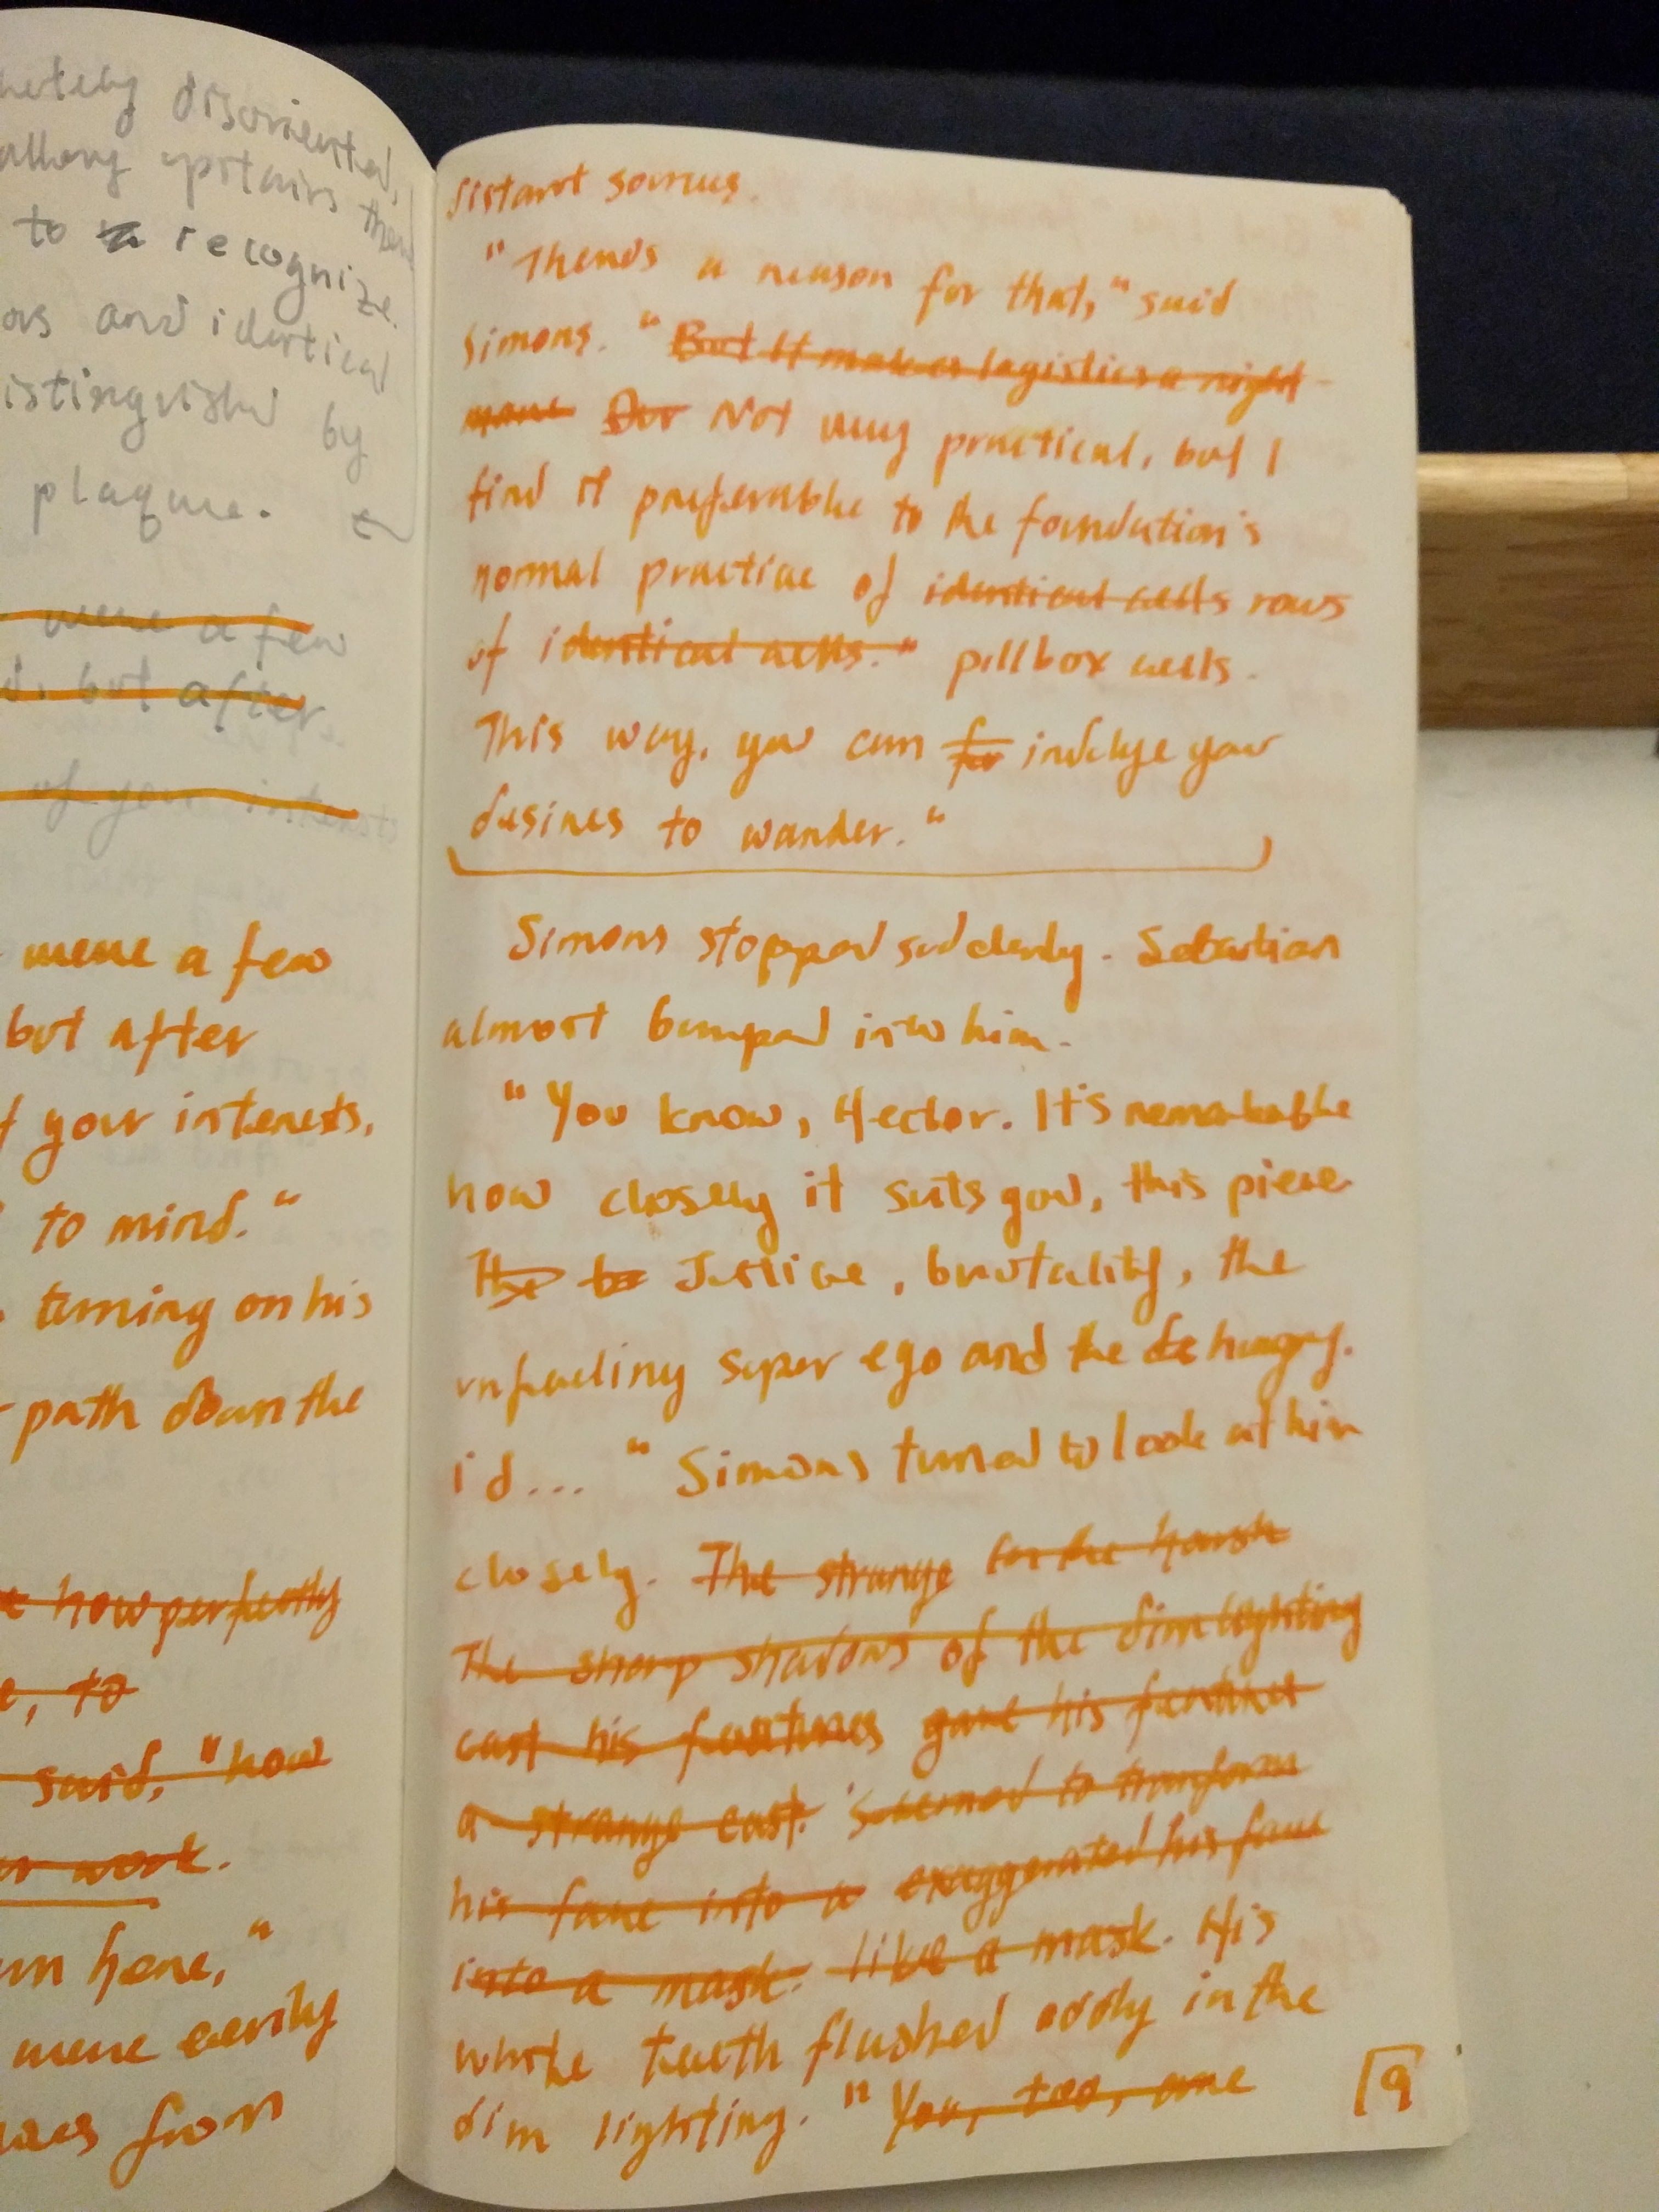 disoriented,
upstairs then
to recognize.
and identical
by
plaque.
were a few
but after
of your interests
were a few
but after
your interests,
to mind."
turning on his
path down the
how perfectly
to
said, "how
work.
here,"
were eerily
from
distant sources.
"There's a reason for that," said
Simons. "But it makes logistics a night-
mare Our Not very practical, but I
find it preferable to the foundation's
normal practice of identical cells rows
of identical cells." pillbox cells.
This way, you can for indulge your
desires to wander."
Simons stopped suddenly. Sebastian
almost bumped into him.
"You know, Hector. It's remarkable
how closely it suits you, this piece
The Justice, brutality, the
unfeeling super ego and the hungry
id..." Simons turned to look at him
closely. The strange the harsh
The sharp shadows of the dim lighting
cast his features gave his features
a strange cast. Seemed to transform
his face into a exaggerated his face
into a mask. like a mask. His
white teeth flashed oddly in the
dim lighting. "You, too, are
9